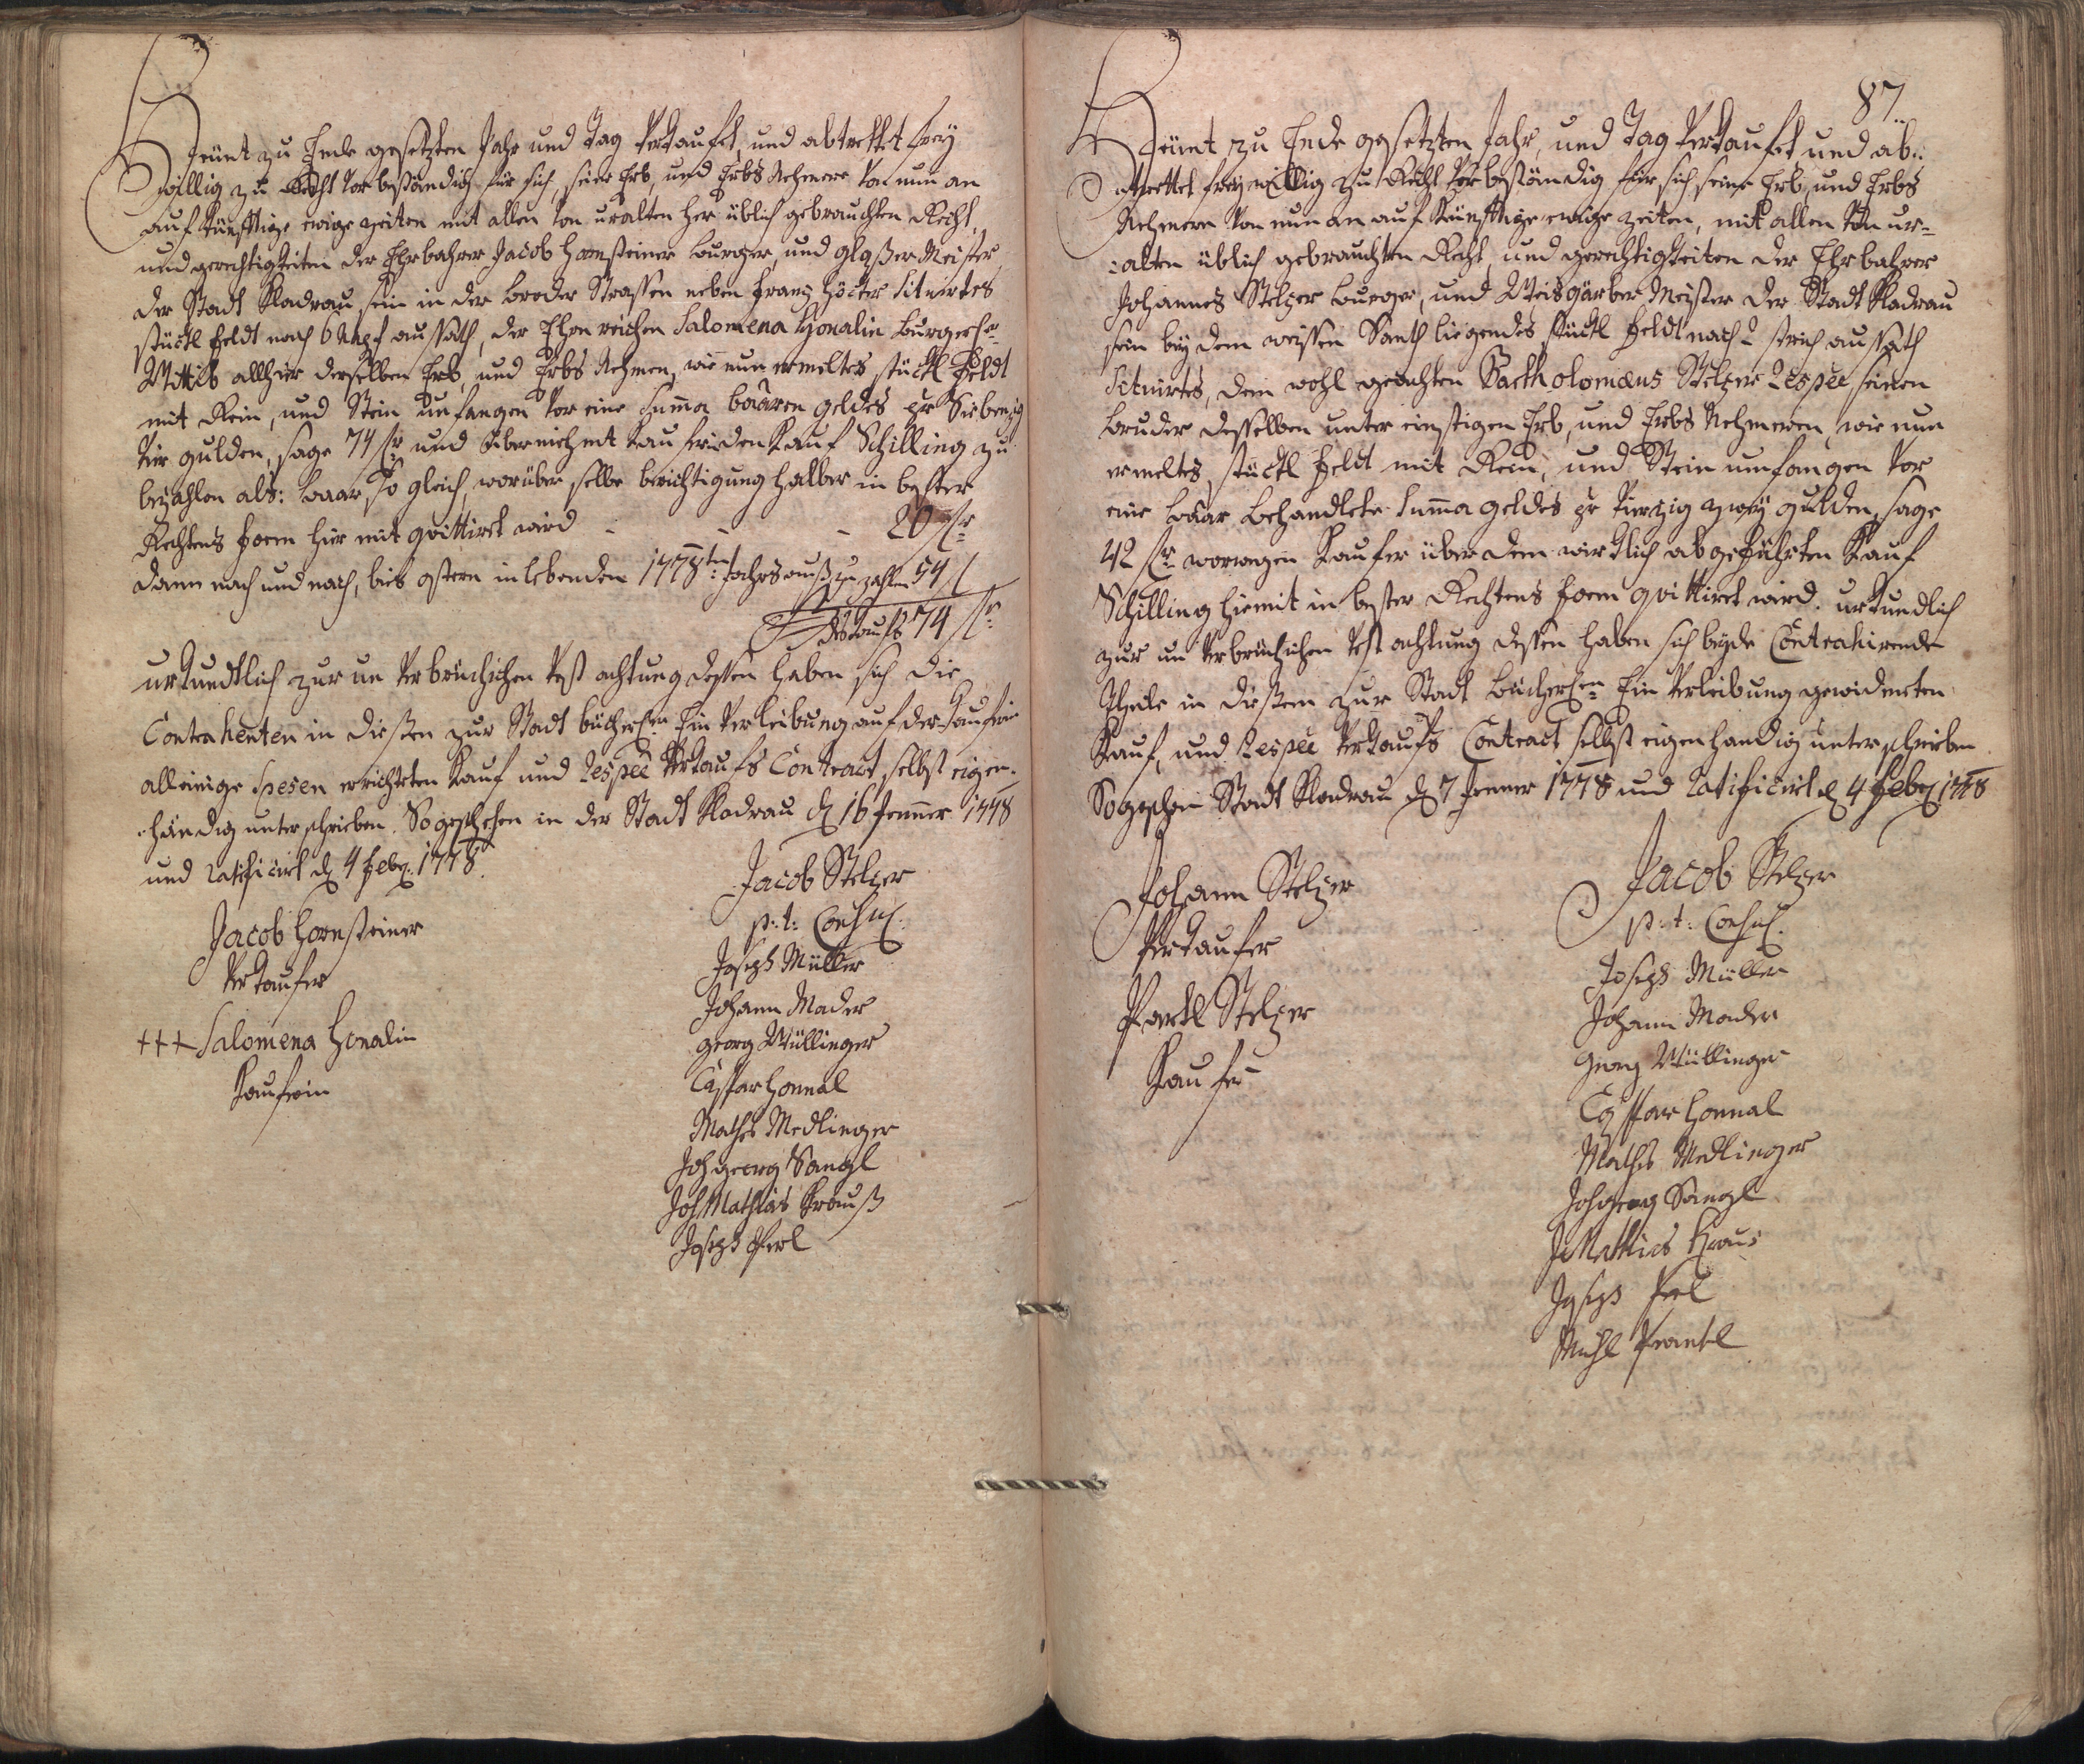 Heünt zu Ende gesetzten Jahr und Tag Verkaufet, und abtrettet frey
willig zu Recht vorbeständig für sich, seine Erb, und Erbs Nehmere von nun an
auf künfftige ewige zeiten mit allen von uralten her üblich gebrauchten Recht,
und gerechtigkeiten der Ehrbahrer Jacob Hornsteiner burger, und glaßer Meister
der Stadt Kladrau sein in der broder Strassen neben Franz Höcker Situirtes
stückl Feldt nach 6 Napf aussath, der Ehrn reichen Salomena Honalin burgerl:
Wittib allhier derselben Erb, und Erbs Nehmen, wie nun ermeltes stückl Feldt
mit Rein, und Stein umfangen vor eine Summa baaren geldes pr Siebenzig
vier gulden, sage 74 fr und übernehmt Kauferin den Kauf Schilling zu
bezahlen als: baar so gleich, worüber selbe berichtigung halber in bester
Rechtens form hier mit quittirt wird - - - 20 fr
dann nach und nach, bies ostern in lebenden 1778ten Jahrs auß zu zahlen 54 f
des Kaufs 74 fr
urkundtlich zur un verbrüchichen vest achtung dessen haben sich die
Contrahenten in dießen zur Stadt bücherl:en Ein verleibung auf der Kauferin
alleinige Spesen errichteten Kauf und respee Verkaufs Contract selbst eigen-
händig unterschrieben. So geschehen in der Stadt Kladrau d 16 Jenner 1778
und ratificirt d 4 Feber 1778.
Jacob Stelzer
p: t: Consul.
Jacob Hornsteiner
Verkaufer
+++ Salomena Honalin
Kauferin
Joseph Müller
Johann Mader
Georg Wüllinger
Casspar Honnal
Mathes Medlinger
Joh georg Sangl
Joh Mathias Krauß
Joseph Perl
87
Heünt zu Ende gesetzten Jahr, und Tag Verkaufet, und ab-
trettet frey willig zu Recht vorbeständig für sich seine Erb, und Erbs
Nehmere von nun an auf künfftige ewige zeiten, mit allen von ur-
alten üblich gebrauchten Recht, und gerechtigkeiten der Ehrbahrer
Johannes Stelzer burger, und Weisgärber Meister der Stadt Kladrau
sein bey dem weissen Santh liegendes stückl Feldt nach 2 strich aussath
Situirtes, dem wohl geachten Bartholomæus Stelzer respee seinen
bruder desselben unter einstigen Erb, und Erbs Nehmeren, wie nun
ermeltes stückl Feldt mit Rein, und Stein umfangen vor
eine baar behandlete Summa geldes pr vierzig zwey gulden, sage
42 fr worwegen Kaufer über dem wirklich abgeführten Kauf
Schilling hiemit in bester Rechtens form quittirt wird. urkundlich
zur un verbrüchichen vest achtung dessen haben sich beyde Contrahirende
theile in diessem zur Stadt bücherl:en Ein verleibung gewidmeten
Kauf, und respee Verkaufs Contract selbst eigenhandig unterschrieben
So geschehen Stadt Kladrau d 7 Jenner 1778 und ratificirt d 4 Feber 1778
Johann Stelzer
Verkaufer
Partl Stelzer
Kaufer
Jacob Stelzer
p: t: Consul.
Joseph Müller
Johann Mader
Georg Wüllinger
Casspar Honnal
Mathes Medlinger
Joh georg Sangl
J Mathias Kraus
Joseph Perl
Michl Prantl